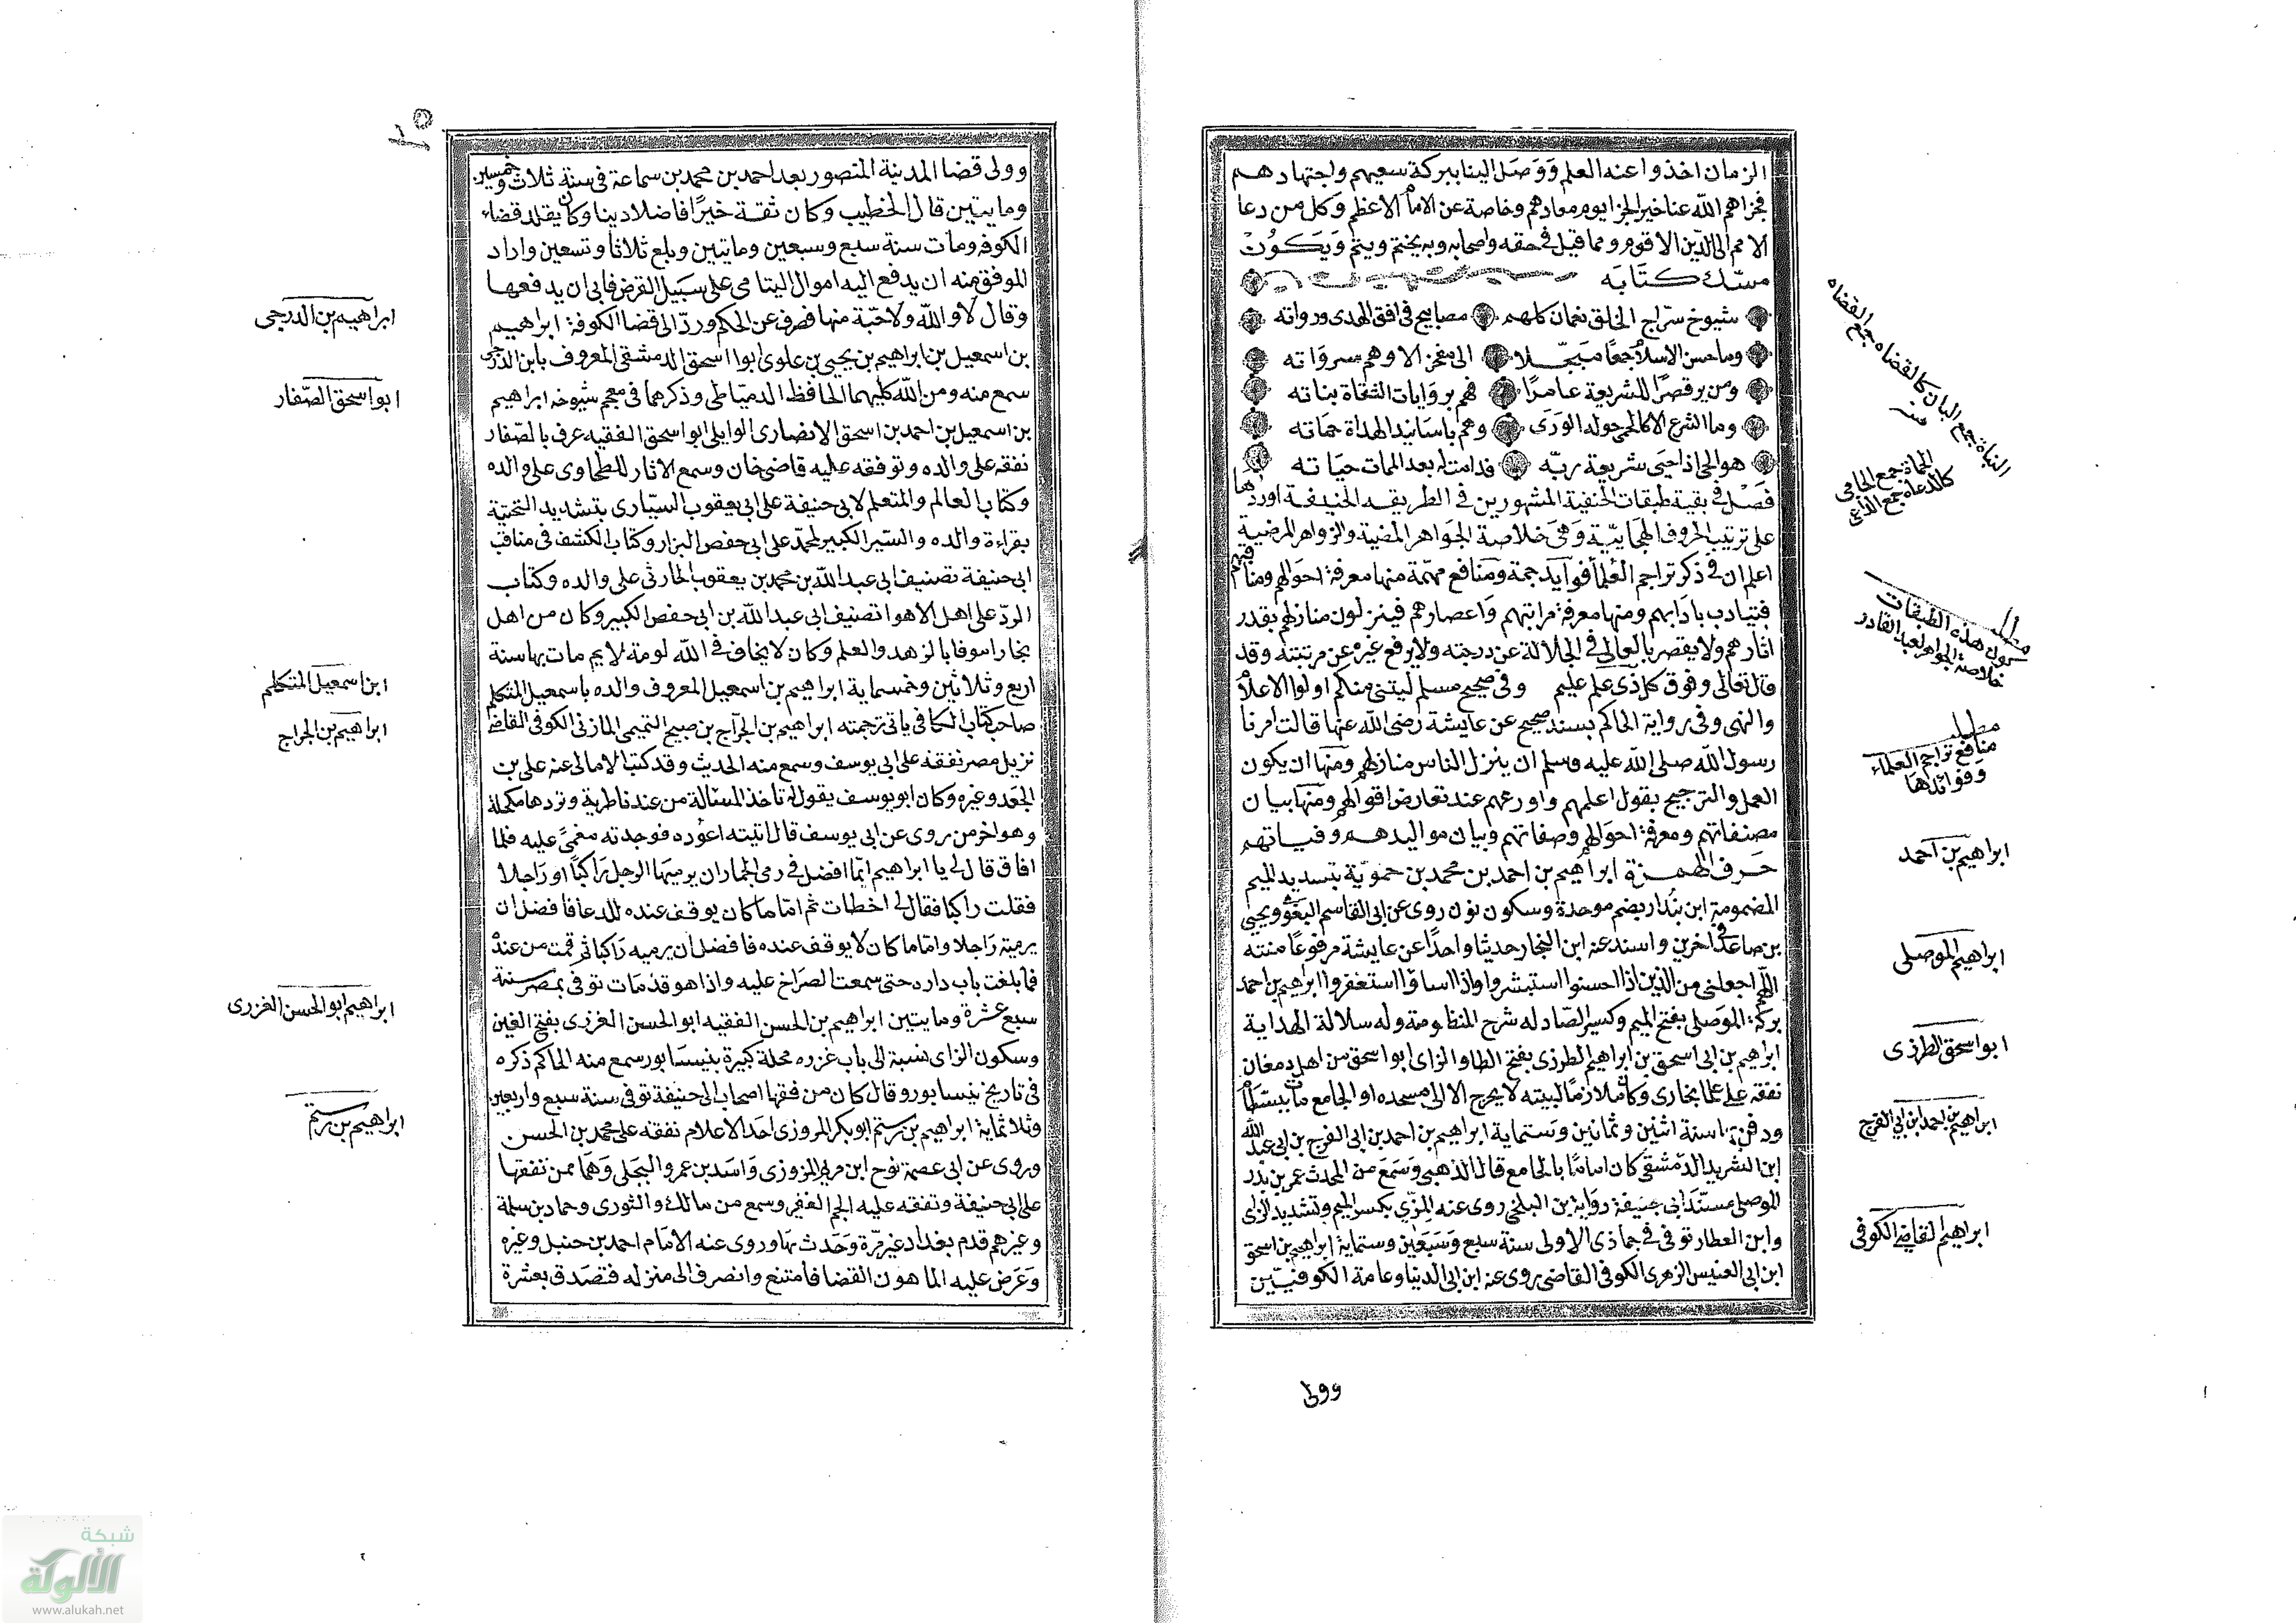 الزمان اخذوا عنه العلم ووصل الينا ببركة سعيهم واجتهادهم
فجزاهم الله عنا خير الجزا يوم معادهم وخاصة عن الامام الاعظم وكل من دعا
الامم الى الدين الاقوم ومما قيل في حقه واصحابه وبه يختم ويتم ويكون
مسك كتابه
شيوخ سراج الخلق نعمان كلهم مصابيح في افق الهدى ورواته
وما حسن الاسلام جمعا مبجلا الى مفخر الا وهم سرواته
ومن ير قصرا للشريعة عامرا فهم بروايات الثقاة بناته
وما الشرع الا كالحمى حوله الورى وهم باسانيد الهداة حماته
هو الحى اذا حيى شريعة ربه فدامت له بعد الممات حياته
فصل في بقية طبقات الحنفية المشهورين في الطريقه الحنيفة اوردها
على ترتيب الحروف الهجائية وهى خلاصة الجواهر المضية والزواهر المرضية
اعلم ان في ذكر تراجم العلما فوايد جمة ومنافع مهمة منها معرفة احوالهم ومناقبهم
فيتادب بادابهم ومنها معرفة مراتبهم واعصارهم فينزلون منازلهم بقدر
اثارهم ولا يقصر بالعالى في الجلالة عن درجته ولا يرفع غيره عن مرتبته وقد
قال تعالى وفوق كل ذى علم عليم وفى صحيح مسلم ليتنى منكم اولوا الاحلام
والنهى وفى رواية الحاكم بسند صحيح عن عايشة رضى الله عنها قالت امرنا
رسول الله صلى الله عليه وسلم ان ينزل الناس منازلهم ومنها ان يكون
العمل والترجيح بقول اعلمهم واورعهم عند تعارض اقوالهم ومنها بيان
مصنفاتهم ومعرفة احوالهم وصفاتهم وبيان مواليدهم وفياتهم
حرف الهمزة ابراهيم بن احمد بن محمد بن حموية بتشديد الميم
المضمومة ابن بندار بضم موحدة وسكون نون روى عن ابى القاسم البغوى ويحيى
بن صاعد في اخرين واسند عنه ابن النجار حديثا واحدا عن عايشة مرفوعا متنه
اللهم اجعلنى من الذين اذا احسنوا استبشروا واذا اساؤا استغفروا ابراهيم بن احمد
بركة الموصلى بفتح الميم وكسر الصاد له شرح المنظومة وله سلالة الهداية
ابراهيم بن ابى اسحق بن ابراهيم الطرزى بفتح الطا والزاى ابو اسحق من اهل دمغان
تفقه على علما بخارى وكان ملازما لبيته لا يخرج الا الى مسجده او الجامع مات ببسطام
ودفن بها سنة اثنين وثمانين وستماية ابراهيم بن احمد بن ابى الفرج بن ابى عبد الله
ابن الشريد الدمشقى كان اماما بالجامع قال الذهبى وسمع من المحدث عمر بن بدر
الموصلى مسند ابى حنيفة رواية بن البلخى روى عنه المزى بكسر الميم وتشديد الزاى
وابن العطار توفى في جماذى الاولى سنة سبع وسبعين وستماية ابراهيم بن اسحق
ابن ابى العنبس الزهرى الكوفى القاضى روى عنه ابن ابى الدنيا وعامة الكوفيين
وولى
النباة جمع البان كالقضاه جمع القضاه
منه
الحماة جمع الحامى
كالدعاة جمع الداعى
مطلب
كون هذه الطبقات
خلاصة الجواهر لعبد القادر
مطلب
منافع تراجم العلماء
وفوائدها
ابراهيم بن احمد
ابراهيم الموصلى
ابو اسحق الطرزى
ابراهيم بن احمد ابن ابي الفرج
ابراهيم القاضى الكوفى
٢٥
وولى قضا المدينة المنصور بعد احمد بن محمد بن سماعة في سنة ثلاث وخمسين
ومايتين قال الخطيب وكان ثقة خيرا فاضلا دينا وكان يقلد قضاء
الكوفه ومات سنة سبع وسبعين ومايتين وبلغ ثلاثا وتسعين واراد
الموفق منه ان يدفع اليه اموال اليتامى على سبيل القرض فابى ان يدفعها
وقال لا والله ولا حبة منها فصرف عن الحكم ورد الى قضا الكوفة ابراهيم
بن اسمعيل بن ابراهيم بن يحيى بن علوى ابو اسحق الدمشقى المعروف بابن الدرجى
سمع منه ومن الله كليهما الحافظ الدمياطى وذكرهما في معجم شيوخه ابراهيم
بن اسمعيل بن احمد بن اسحق الانصارى الوايلى ابو اسحق الفقيه عرف بالصفار
تفقه على والده وتوفقه عليه قاضى خان وسمع الاثار للطحاوى على والده
وكتاب العالم والمتعلم لابى حنيفة على ابى يعقوب السيارى بتشديد التحتية
بقراءة والده والسير الكبير لمحمد على ابى حفص البزار وكتاب الكشف في مناقب
ابى حنيفة تصنيف ابى عبد الله بن محمد بن يعقوب الحارثى على والده وكتاب
الرد على اهل الاهوا تصنيف ابى عبد الله بن ابى حفص الكبير وكان من اهل
بخارا موفا بالزهد والعلم وكان لا يخاف في الله لومة لايم مات بها سنة
اربع وثلاثين وخمسماية ابراهيم بن اسمعيل المعروف والده باسمعيل المتكلم
صاحب كتاب الكافى ياتى ترجمته ابراهيم بن الجراح بن صبيح التميمى المازنى الكوفى القاضى
نزيل مصر تفقه على ابى يوسف وسمع منه الحديث وقد كتب الامالى عنه على بن
الجعد وغيره وكان ابو يوسف يقول له تاخذ المسئالة من عندنا طرية وتردها مكملة
وهو اخر من روى عن ابى يوسف قال اتيته اعوده فوجدته مغمى عليه فلما
افاق قال لى يا ابراهيم ايما افضل في رمى الجمار ان يرميها الرجل راكبا او راجلا
فقلت راكبا فقال لى اخطات ثم اما ما كان يوقف عنده للدعا فافضل ان
يرميه راجلا واما ما كان لا يوقف عنده فافضل ان يرميه راكبا ثم قمت من عنده
فما بلغت باب داره حتى سمعت الصراخ عليه واذا هو قد مات توفى بمصر سنة
سبع عشرة ومايتين ابراهيم بن الحسن الفقيه ابو الحسن الغزرى بفتح الغين
وسكون الزاى نسبة الى باب غزره محلة كبيرة بنيسابور سمع منه الحاكم ذكره
في تاريخ نيسابور وقال كان من فقها اصحاب ابى حنيفة توفى سنة سبع واربعين
وثلاثماية ابراهيم بن رستم ابو بكر المروزى احد الاعلام تفقه على محمد بن الحسن
وروى عن ابى عصمة نوح ابن مريم المروزى واسد بن عمرو البجلى وهما ممن تفقها
على ابى حنيفة وتفقه عليه الجم الغفير وسمع من مالك والثورى وحماد بن سلمة
وغيرهم قدم بغداد غير مرة وحدث بها وروى عنه الامام احمد بن حنبل وغيره
وعرض عليه المامون القضا فامتنع وانصرف الى منزله فتصدق بعشرة
ابراهيم بن الدرجى
ابو اسحق الصفار
ابن اسمعيل المتكلم
ابراهيم بن الجراح
ابراهيم ابو الحسن الغزرى
ابراهيم بن رستم
شبكة
الألوكة
www.alukah.net